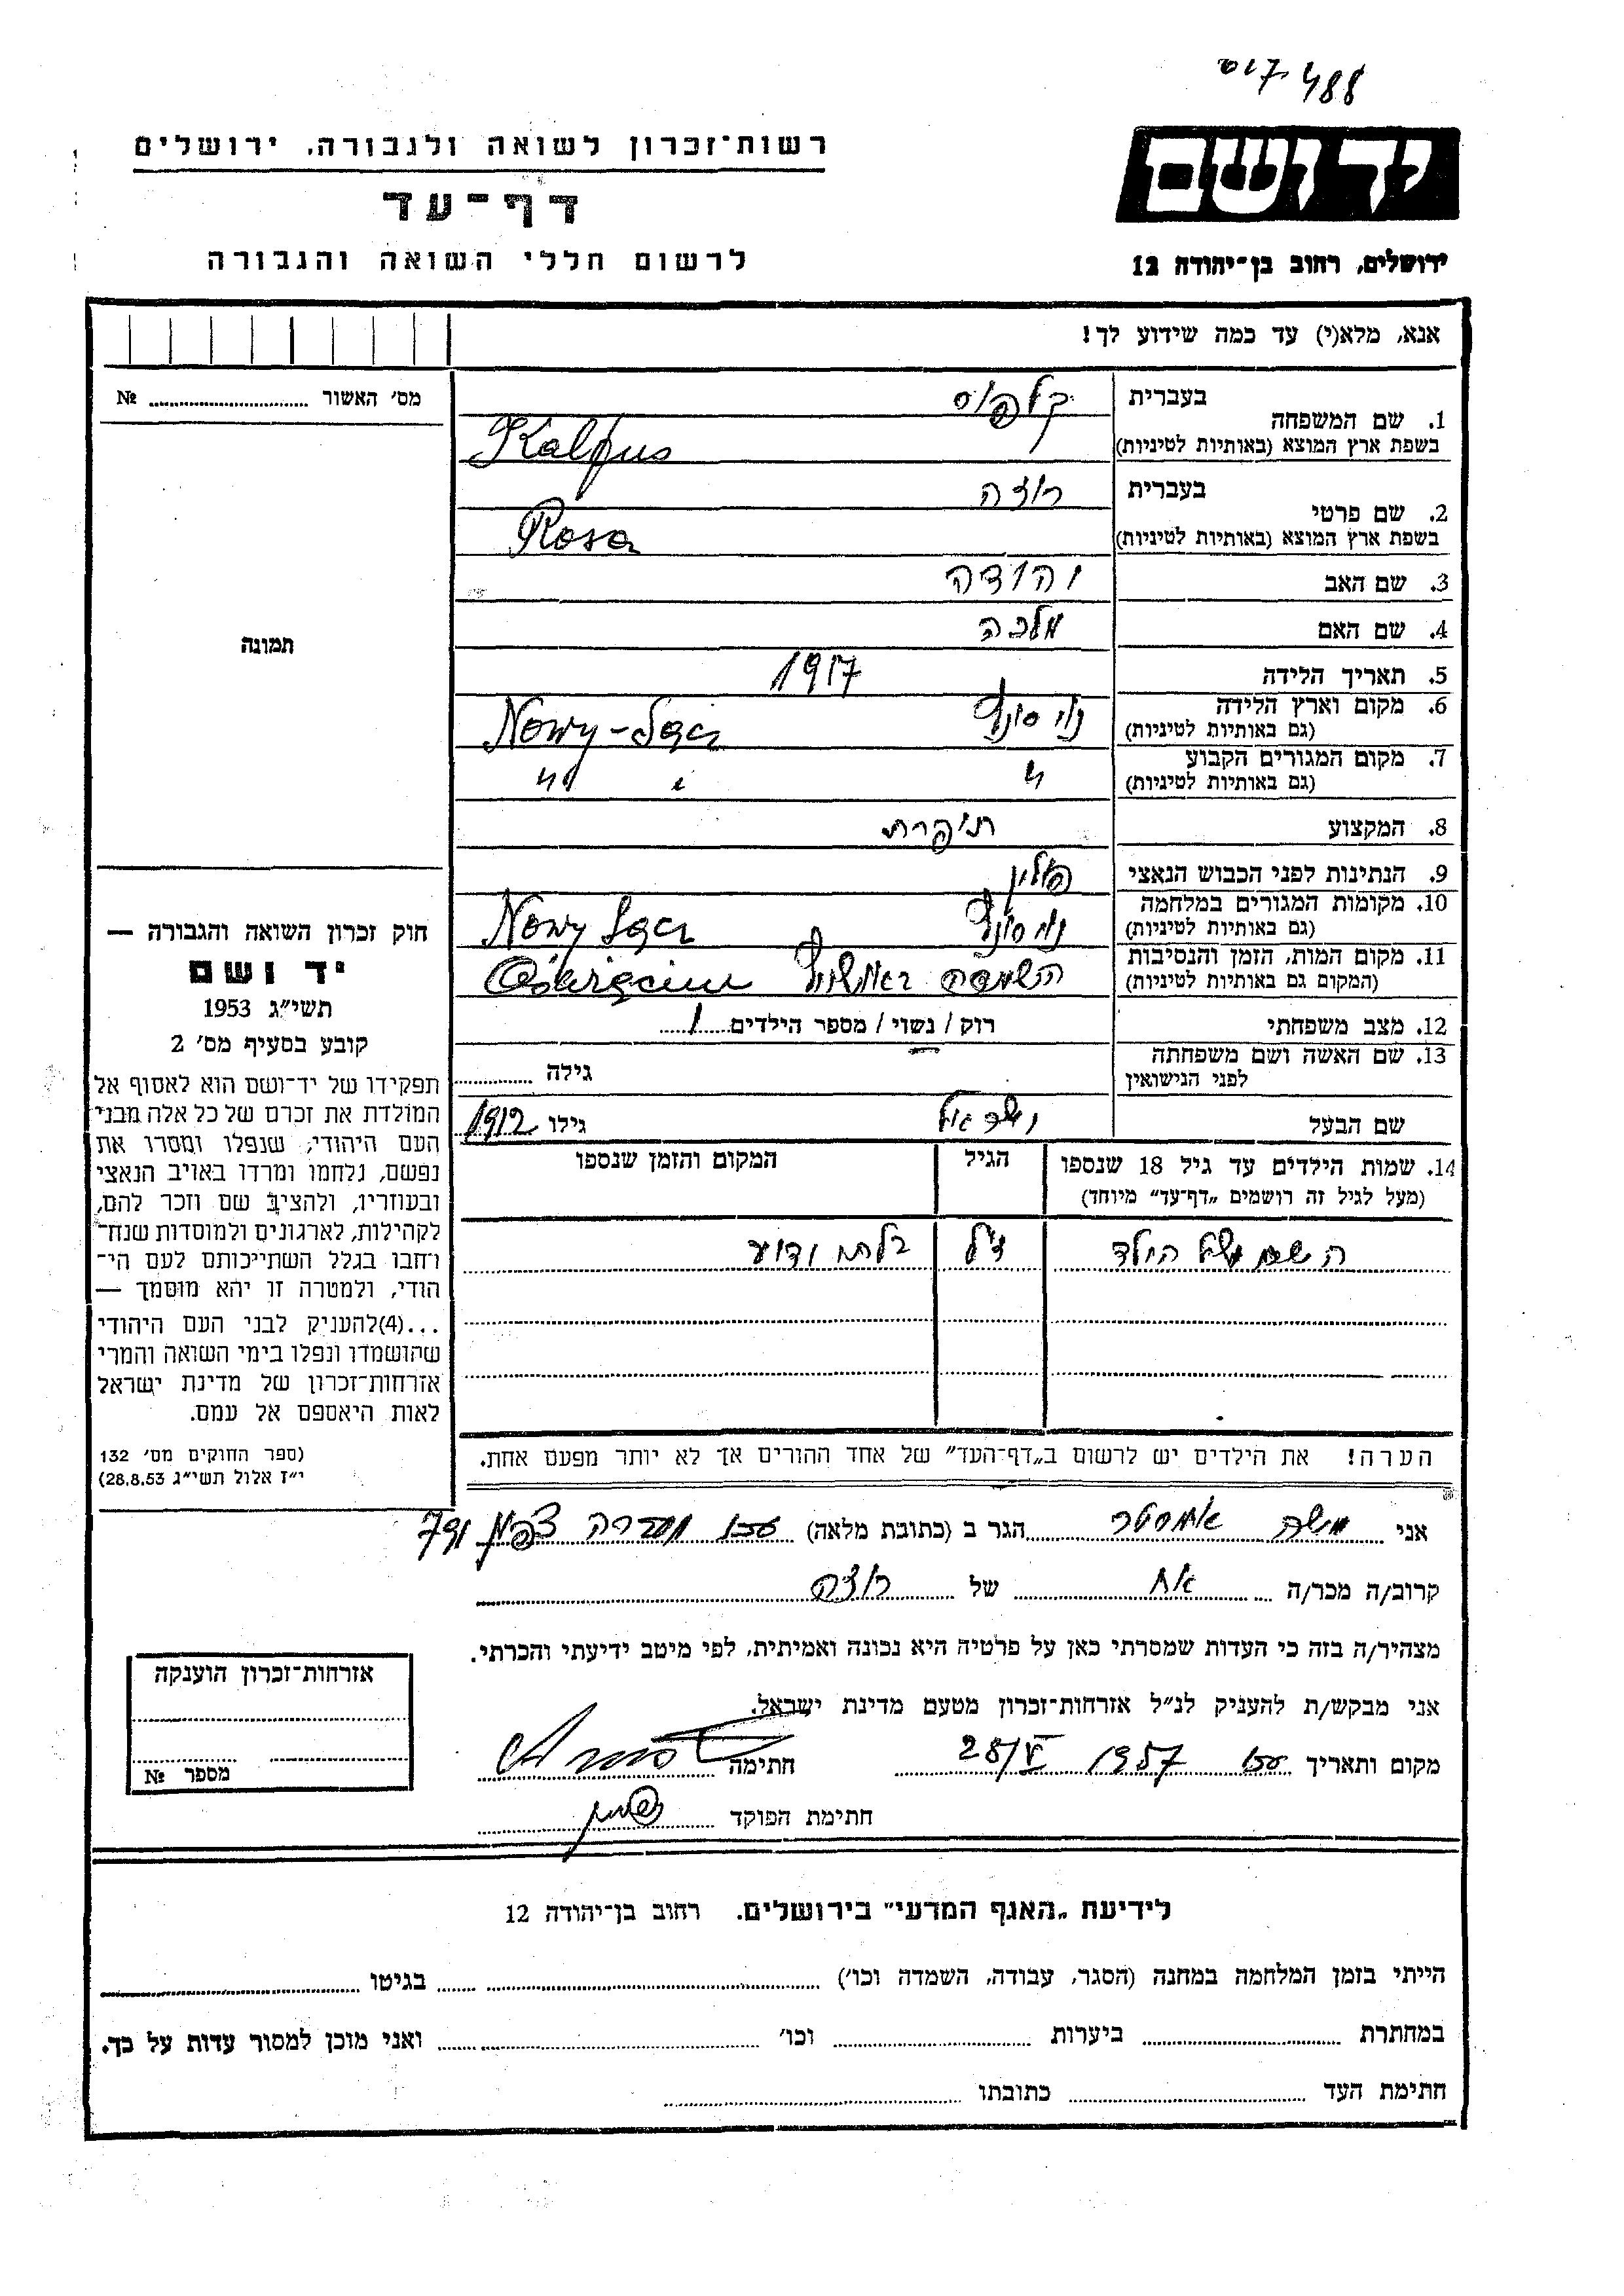 488
יד ושם
ירושלים, רחוב בן־יהודה 12
רשות־זכרון לשואה ולגבורה, ירושלים
דף־עד
לרשום חללי השואה והגבורה
אנא, מלא(י) עד כמה שידוע לך!
מס׳ האשור № 
1. שם המשפחה בעברית קלפוס
בשפת ארץ המוצא (באותיות לטיניות) Kalpus
2. שם פרטי בעברית רוזה
בשפת ארץ המוצא (באותיות לטיניות) Rosa
3. שם האב יהודה
4. שם האם מלכה
5. תאריך הלידה 1917
6. מקום וארץ הלידה
(גם באותיות לטיניות) נוי סונץ Nowy-Sącz
7. מקום המגורים הקבוע
(גם באותיות לטיניות) " " "
8. המקצוע תופרת
9. הנתינות לפני הכבוש הנאצי פולין
10. מקומות המגורים במלחמה
(גם באותיות לטיניות) נוי סונץ Nowy Sącz
11. מקום המות, הזמן והנסיבות
(המקום גם באותיות לטיניות) השמדה באושויץ Oświęcim
12. מצב משפחתי רוק / נשוי / מספר הילדים 1
13. שם האשה ושם משפחתה
לפני הנישואין גילה
שם הבעל ישראל גילו 1912
14. שמות הילדים עד גיל 18 שנספו
(מעל לגיל זה רושמים „דף־עד” מיוחד)
הגיל
המקום והזמן שנספו
השם של הילד בלתי ידוע
הערה! את הילדים יש לרשום ב„דף־העד” של אחד ההורים אך לא יותר מפעם אחת.
תמונה
חוק זכרון השואה והגבורה —
יד ושם
תשי״ג 1953
קובע בסעיף מס׳ 2
תפקידו של יד־ושם הוא לאסוף אל
המולדת את זכרם של כל אלה מבני
העם היהודי, שנפלו ומסרו את
נפשם, נלחמו ומרדו באויב הנאצי
ובעוזריו, ולהציב שם וזכר להם,
לקהילות, לארגונים ולמוסדות שנח־
רחבו בגלל השתייכותם לעם הי־
הודי, ולמטרה זו יהא מוסמך —
...(4)להעניק לבני העם היהודי
שהושמדו ונפלו בימי השואה והמרי
אזרחות־זכרון של מדינת ישראל
לאות היאספם אל עמם.
(ספר החוקים מס׳ 132
י״ז אלול תשי״ג 28.8.53)
אני משה אמסטר הגר ב (כתובת מלאה) עכו
קרוב/ה מכר/ה אח של רוזה
מצהיר/ה בזה כי העדות שמסרתי כאן על פרטיה היא נכונה ואמיתית, לפי מיטב ידיעתי והכרתי.
אני מבקש/ת להעניק לנ״ל אזרחות־זכרון מטעם מדינת ישראל.
מקום ותאריך עכו 1957 28/V חתימה
חתימת הפוקד
אזרחות־זכרון הוענקה
מספר №
לידיעת „האגף המדעי” בירושלים. רחוב בן־יהודה 12
הייתי בזמן המלחמה במחנה (הסגר, עבודה, השמדה וכו׳) בגיטו
במחתרת ביערות וכו׳ ואני מוכן למסור עדות על כך.
חתימת העד כתובתו